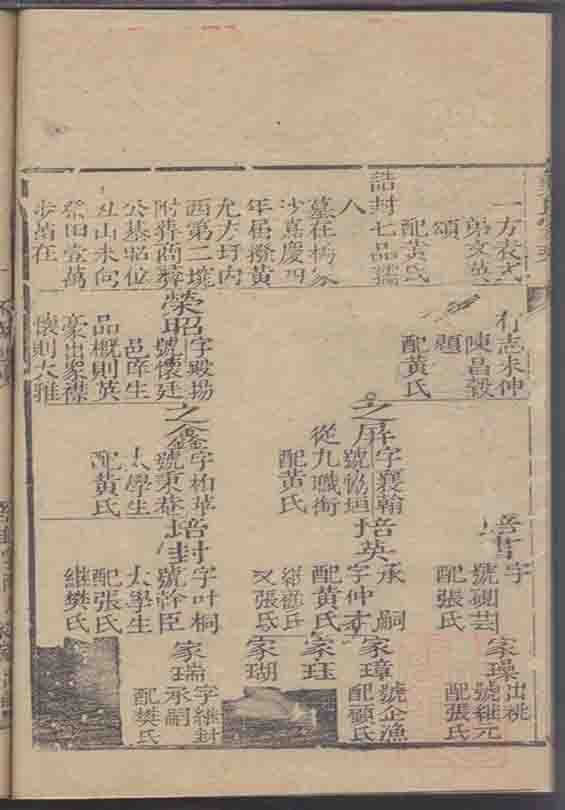 一方表式
弟文英
頌
配黃氏
誥封七品孺
人
墓在楊家
沙嘉慶四
年居撥黃
允方圩內
西第二塊
附葬商彝
公墓昭位
丑山未向
祭田壹萬
步葬在
有志未伸
陳昌穀
題
配黃氏
榮昭
字殿揚
號懷廷
邑庠生
品概則英
豪出眾襟
懷則大雅
之屏
字襄翰
號協垣
從九職銜
配黃氏
之鑫
字柏華
號秉菴
太學生
配黃氏
培
字
號硯芸
配張氏
培英
承嗣
字仲才
配黃氏
繼
又張氏
培封
字叶桐
號幹臣
太學生
配張氏
繼樊氏
家璪
出祧
號繼元
配張氏
家璋
號企漁
配顧氏
家珏
家瑚
家瑞
字維封
承嗣
配樊氏